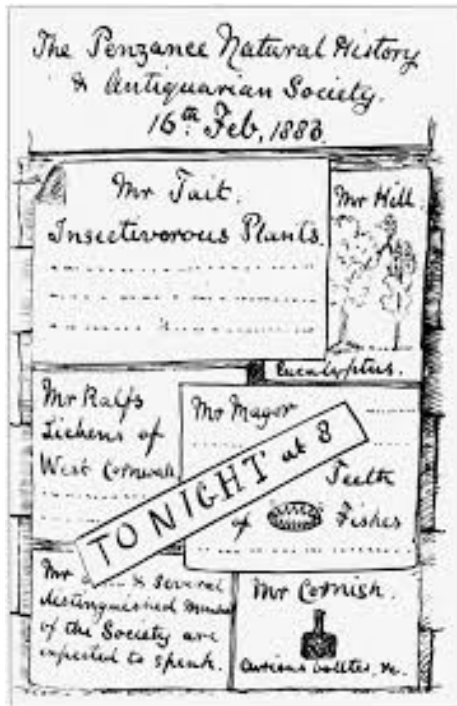 The Penzance Natural History
& Antiquarian Society.
16th Feb, 1883.
Mr Tait.
Insectivorous Plants.
Mr Hill.
Eucalyptus.
Mr Ralfs
Lichens of
West Cornwall
Mr Magor
Teeth
of Fishes
TONIGHT at 8
Mr & several
distinguished
of the Society are
expected to speak.
Mr Cornish.
Curious bottles, &c.